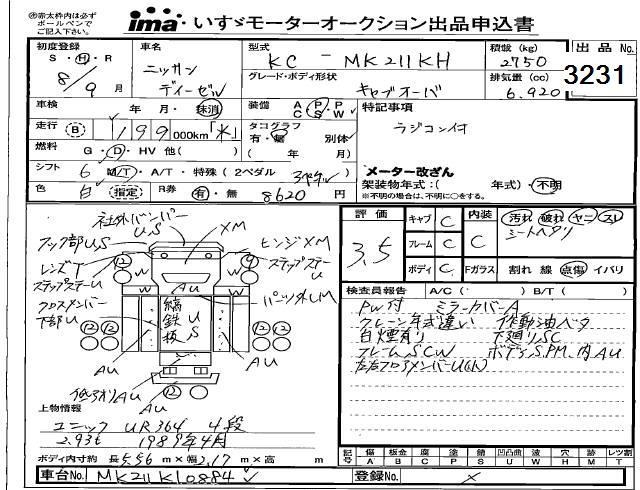 ㊟赤太枠内は必ず
ボールペンで
ご記入下さい。
ima いすゞモーターオークション出品申込書
初度登録
S・H・R
8/9月
車名
ニッサン
ディーゼル
型式
KC - MK211KH
グレード・ボディ形状
キャブオーバ
積載 (kg)
2750
排気量 (cc)
6.920
出品No.
3231
車検 年 月・抹消
装備 A C P S P W
特記事項
ラジコン付
走行 (B) 199 000km「*」
タコグラフ
有・無 別体
( 年 月)
燃料 G・D・HV 他( )
シフト 6 M/T・A/T・特殊 (2ペダル
色 白 (指定) R券 有・無 8620円
メーター改ざん
架装物年式:( 年式)・不明
※不明の場合は、不明に○をする。
社外バンパー
US
フック部US
XM
ヒンジXM
レンズT
ステップステーU
ステップステー
U
W
W
AU
パーツ外しM
クロスメンバー
下部U
縞
鉄
板
U
S
⑫
⑫
⑫
⑫
AU
AU
AU
上物情報
ユニック UR364 4段
2.93t 1989年4月
ボディ内寸約 長5.56m×幅2.17m×高 m
評価
3.5
キャブ C
フレーム C
ボディ C
内装
C
Fガラス
汚れ 破れ ヤニ スレ
シートヘタリ
割れ 線 点傷 イバリ
検査員報告 A/C ( ) B/T ( )
PW付 ミラーカバーA
クレーン年式違い 作動油ベタ
白煙有り 下廻りSC
フレームSCW ボディS.P.M.内AU
左右フロアメンバーU(小)
記号 傷A 凹B 板金 腐C 塗P 錆S 凹凸曲U 波W 穴H 跡M レツ割T
車台No. MK211K10884
登録No. ×